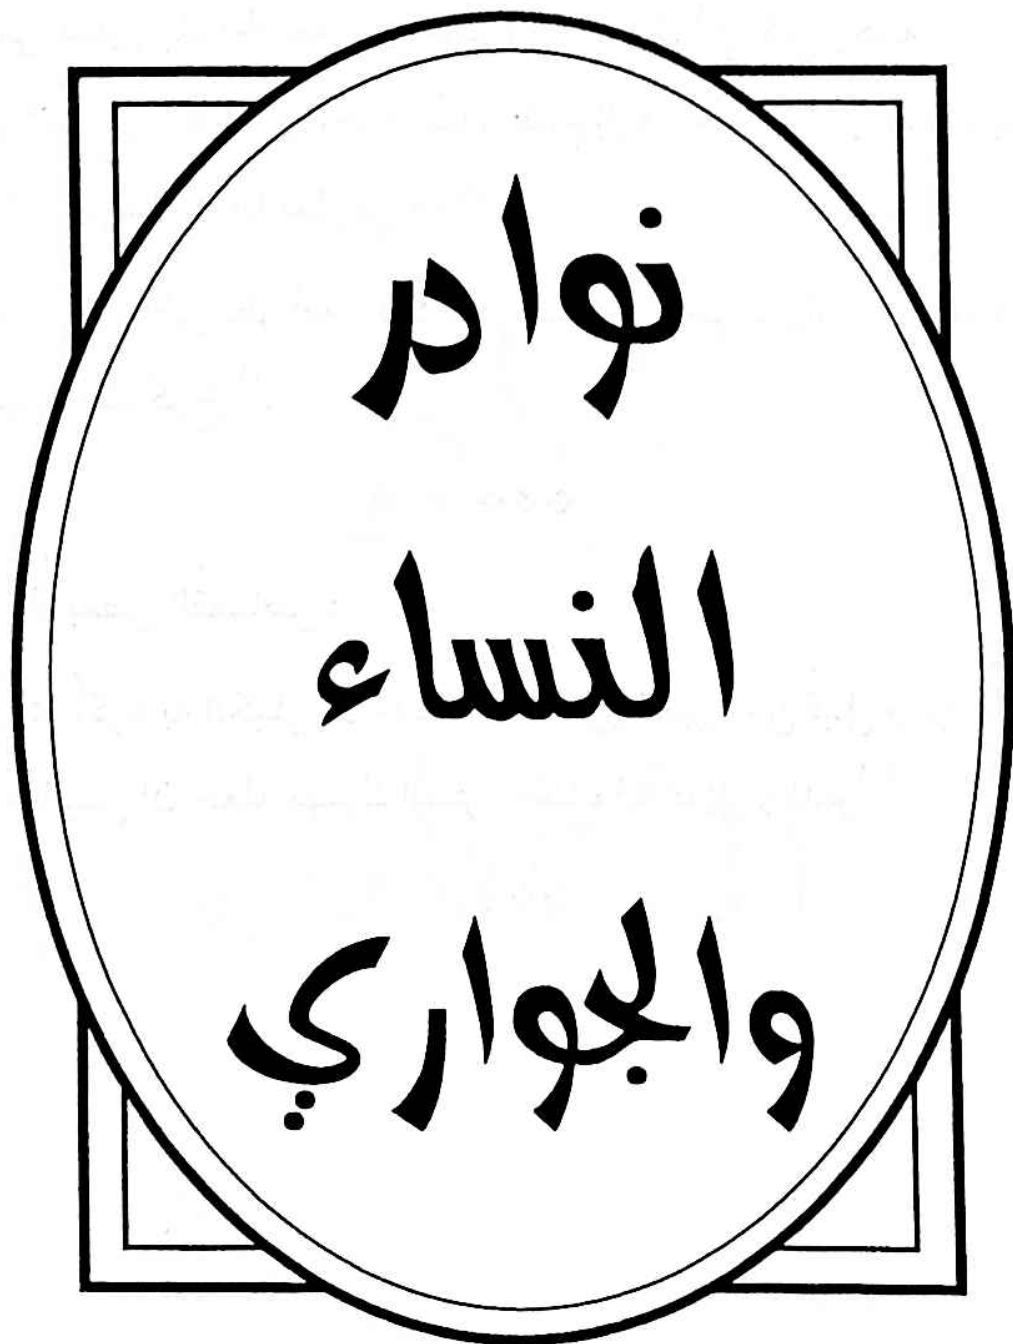 نوادر
النساء
والجواري